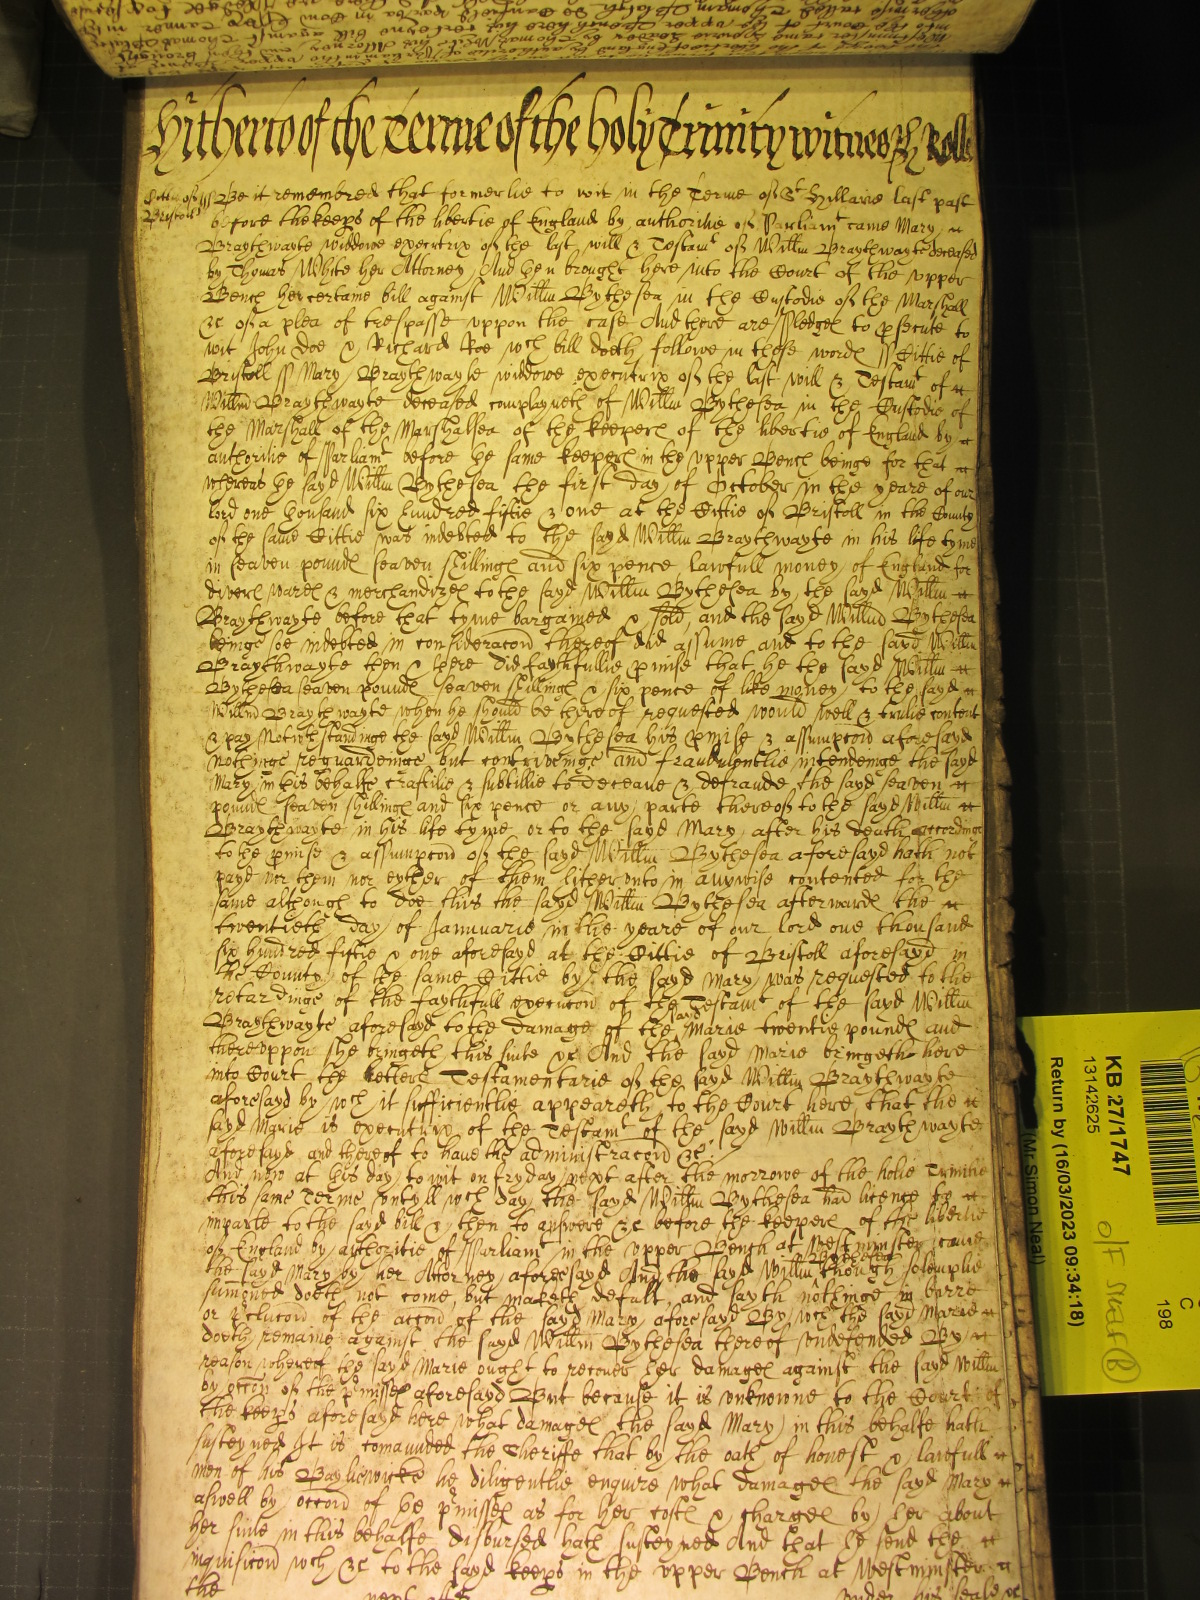 Hitherto of the Terme of the holy Trinity witnes H Rolle
Cittie of Bristoll ss Be it remembred that formerlie to wit in the Terme of St Hillarie last past
before the keeps of the libertie of England by authoritie of Parliamt came Mary
Braythwayte widdowe executrix of the last will & Testamt of Willm Braythwayte deceased
by Thomas White her Attorney And then brought here into the Court of the upper
Bench her certame bill against Willm Bythesea in the Custodie of the Marshall
&c of a plea of trespasse uppon the case And there are Pledges to psecute to
wit John Doe & Richard Roe wch bill doeth followe in these words ss Cittie of
Bristoll ss Mary Braythwayte widdowe executrix of the last will & Testamt of
Willm Braythwayte deceased complayneth of Willm Bythesea in the Custodie of
the Marshall of the Marshalsea of the keepers of the libertie of England by
authoritie of Parliamt before the same keepers in the upper Bench beinge for that
whereas the sayd Willm Bythesea the first day of October in the yeare of our
lord one thousand six hundred fiftie & one at the Cittie of Bristoll in the County
of the same Cittie was indebted to the sayd Willm Braythwayte in his life tyme
in seaven pounds seaven shillings and six pence lawfull money of England for
divers wares & merchandizes to the sayd Willm Bythesea by the sayd Willm
Braythwayte before that tyme bargained & sold, and the sayd Willm Bythesea
beinge soe indebted in consideracon thereof did assume and to the sayd Willm
Braythwayte then & there did faythfullie pmise that he the sayd Willm
Bythesea seaven pounds seaven shillings & six pence of like money to the sayd
Willm Braythwayte when he should be thereof requested would well & trulie content
& pay Notwthstandinge the sayd Willm Bythesea his pmise & assumpcon aforesayd
nothinge reguardeinge but contriveinge and fraudulentlie intendeinge the sayd
Mary in this behalfe craftilie & subtillie to deceave & defraude the sayd seaven
pounds seaven shillings and six pence or any parte thereof to the sayd Willm
Braythwayte in his life tyme or to the sayd Mary after his death accordinge
to the pmise & assumpcon of the sayd Willm Bythesea aforesayd hath not
payd nor them nor eyther of them hitherunto in anywise contented for the
same although to doe this the sayd Willm Bythesea afterwards the
twentieth day of Januarie in the yeare of our lord one thousand
six hundred fiftie & one aforesayd at the Cittie of Bristoll aforesayd in
the County of the same Cittie by the sayd Mary was requested to the
retardinge of the faythfull execucon of the Testamt of the sayd Willm
Braythwayte aforesayd to the damage of the sayd Marie twentie pounds and
thereuppon she bringeth this suite &c And the sayd Marie bringeth here
into Court the letters Testamentarie of the sayd Willm Braythwayte
aforesayd by wch it sufficientlie appeareth to the Court here that the
sayd Marie is executrix of the Testamt of the sayd Willm Braythwayte
aforesayd and thereof to have the administracon &c
And now at this day to wit on fryday next after the morrowe of the holie Trinitie
this same Terme untyll wch day the sayd Willm Bythesea had licence to
imparle to the sayd bill & then to answere &c before the keepers of the libertie
of England by authoritie of Parliamt in the upper Bench at Westminster came
the sayd Mary by her Attorney aforesayd And the sayd Willm Bythesea though solemplie
sumoned doeth not come, but maketh default, and sayth nothinge in barre
or p'clucon of the accon of the sayd Mary aforesayd By wch the sayd Marie
doeth remaine against the sayd Willm Bythesea thereof undefended By
reason whereof the sayd Marie ought to recover her damages against the sayd Willm
by occon of the pmisses aforesayd But because it is unknowne to the Court of
the keeps aforesayd here what damages the sayd Mary in this behalfe hath
susteyned It is comaunded the Sheriffe that by the oath of honest & lawfull
men of his Bayliewicke he diligentlie enquire what damages the sayd Mary
aswell by occon of the pmisses as for her costs & charges by her about
her suite in this behalfe disbursed hath susteyned And that he send the
inquisicon wch &c to the sayd keeps in the upper Bench at Westminster
the next after under his seale &c
KB 27/1747
13142625
Return by (16/03/2023 09:34:18)
(Mr Simon Neal)
C
198